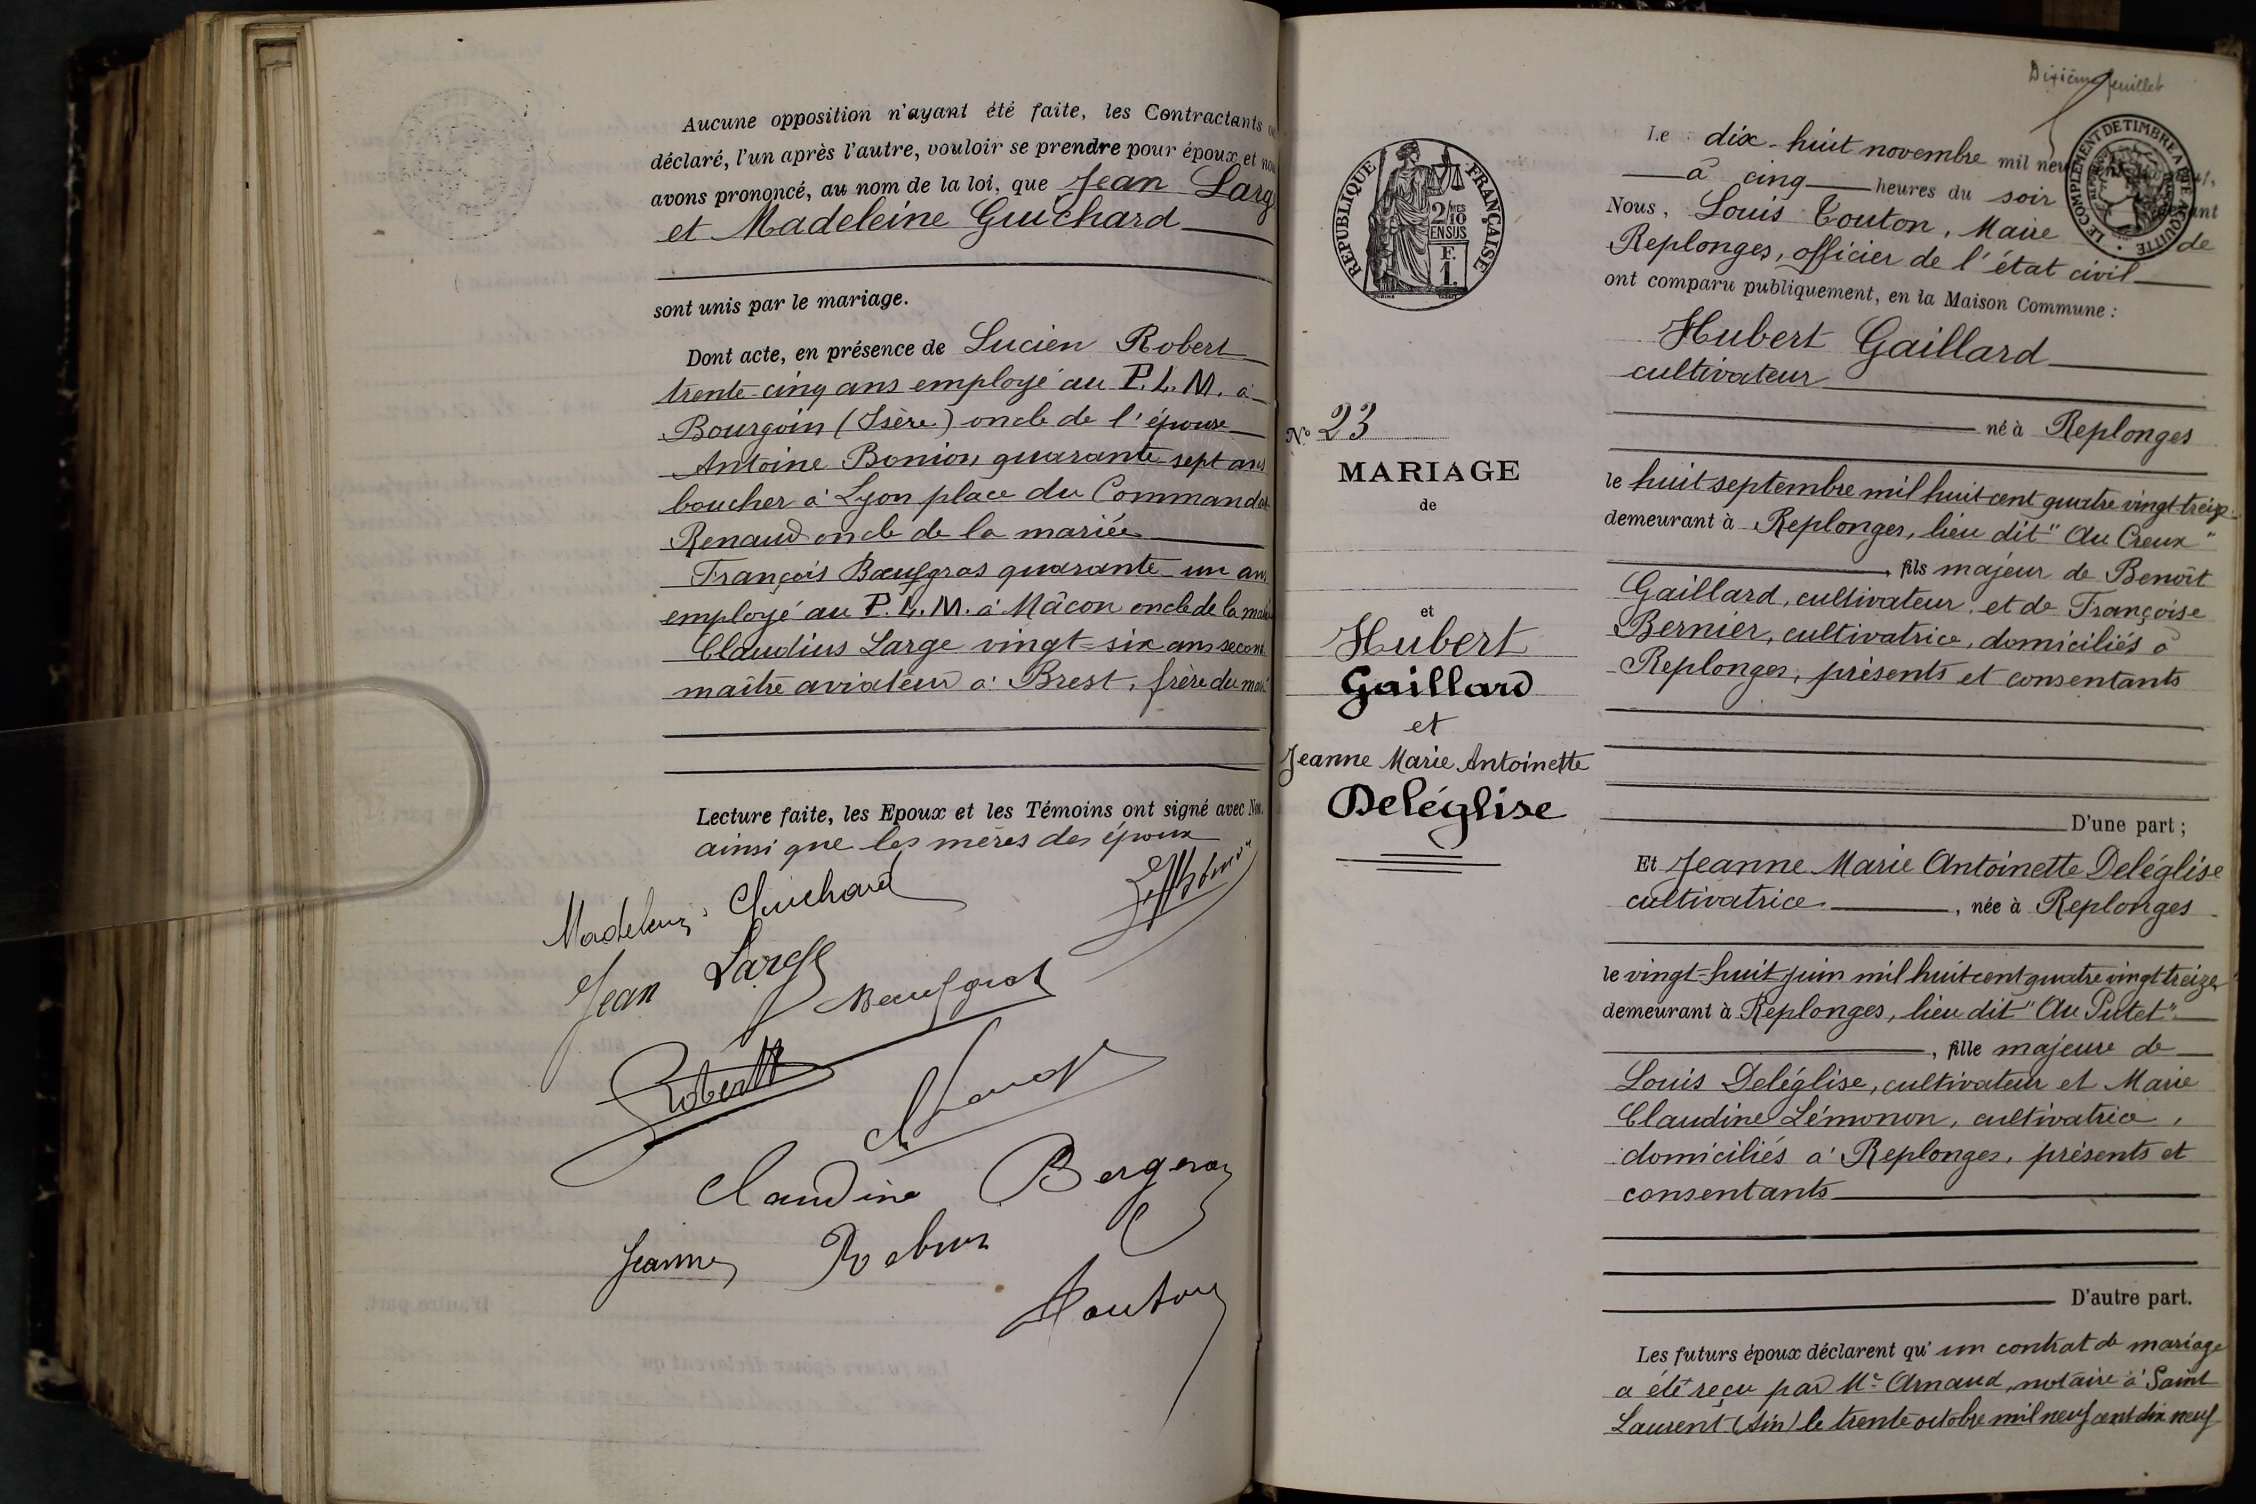 Aucune opposition n'ayant été faite, les Contractants
déclaré, l'un après l'autre, vouloir se prendre pour époux, et
avons prononcé, au nom de la loi, que Jean Larg
et Madeleine Guichard
sont unis par le mariage.
Dont acte, en présence de Lucien Robert
trente-cinq ans employé au P. L. M. à
Bourgoin (Isère) oncle de l'épouse
Antoine quarante sept ans
boucher à Lyon place du
Renaud oncle de la mariée
François Bœufgras quarante-un
employé au P. L. M. à Mâcon oncle de la
Claudius Large vingt-six ans second
maître aviateur à Brest, frère du
Lecture faite, les Epoux et les Témoins ont signé avec
ainsi que les mères des époux
Guichard
Jean Large
Robert
Claudine
Jeanne
Touton
REPUBLIQUE FRANÇAISE
2/10
EN SUS
F.
1.
No 23
MARIAGE
de
et
Hubert
Gaillard
et
Jeanne Marie Antoinette
Deléglise
Dixième feuillet
LE COMPLEMENT DE TIMBRE A ETE ACQUITTE
Le dix-huit novembre mil
à cinq heures du soir
Nous, Louis Touton, Maire de
Replonges, officier de l'état civil
ont comparu publiquement, en la Maison Commune :
Hubert Gaillard
cultivateur
né à Replonges
le huit septembre mil huit cent quatre vingt treize
demeurant à Replonges, lieu dit "Au Creux"
, fils majeur de Benoît
Gaillard, cultivateur, et de Françoise
Bernier, cultivatrice, domiciliés à
Replonges, présents et consentants
D'une part ;
Et Jeanne Marie Antoinette Deléglise
cultivatrice , née à Replonges
le vingt-huit juin mil huit cent quatre vingt treize
demeurant à Replonges, lieu dit "Au Putet"
, fille majeure de
Louis Deléglise, cultivateur et Marie
Claudine Lémonon, cultivatrice,
domiciliés à Replonges, présents et
consentants
D'autre part.
Les futurs époux déclarent qu'un contrat de mariage
a été reçu par Me Arnaud, notaire à Saint
Laurent (Ain) le trente octobre mil neuf cent dix neuf